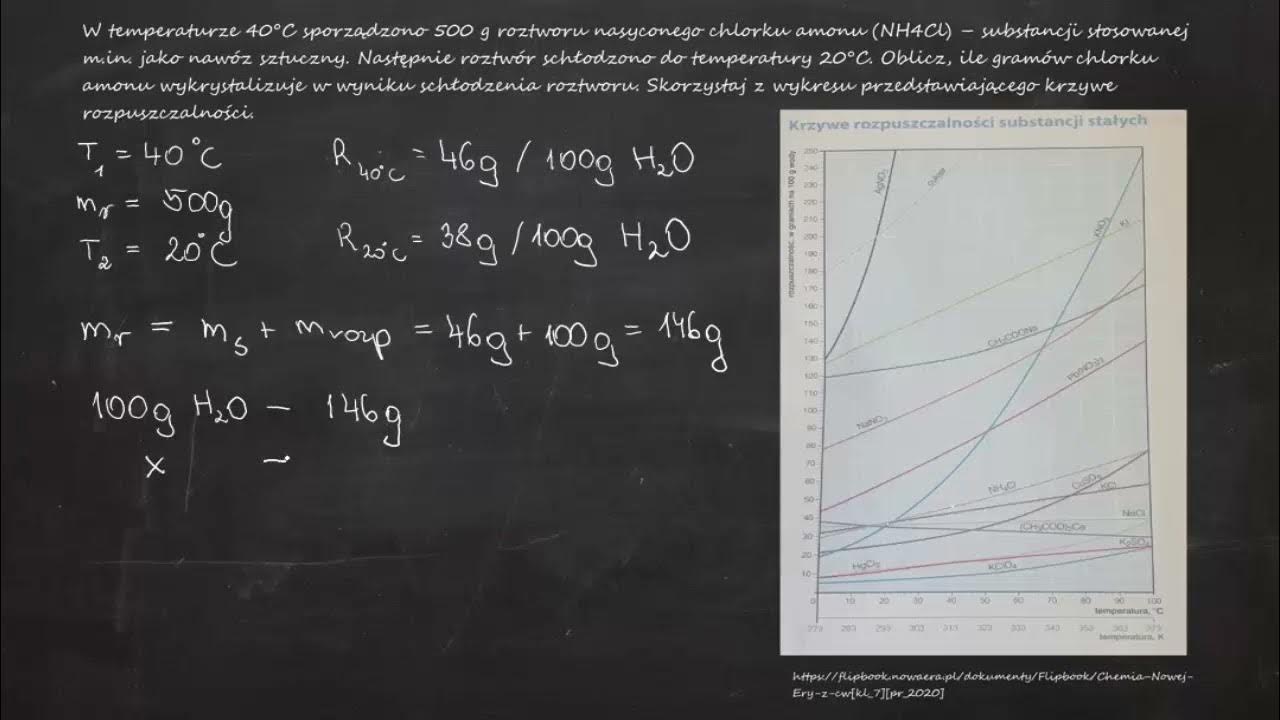 W temperaturze 40°C sporządzono 500 g roztworu nasyconego chlorku amonu (NH4Cl) – substancji stosowanej
m.in. jako nawóz sztuczny. Następnie roztwór schłodzono do temperatury 20°C. Oblicz, ile gramów chlorku
amonu wykrystalizuje w wyniku schłodzenia roztworu. Skorzystaj z wykresu przedstawiającego krzywe
rozpuszczalności.
T₁ = 40°C
R₄₀°C = 46g / 100g H₂O
mᵣ = 500g
T₂ = 20°C
R₂₀°C = 38g / 100g H₂O
mᵣ = mₛ + m rozp = 46g + 100g = 146g
100g H₂O – 146g
x –
Krzywe rozpuszczalności substancji stałych
rozpuszczalność, w gramach na 100 g wody
250
240
230
220
210
200
190
180
170
160
150
140
130
120
110
100
90
80
70
60
50
40
30
20
10
AgNO₃
cukier
KNO₃
KI
CH₃COONa
Pb(NO₃)₂
NaNO₃
NH₄Cl
CuSO₄
KCl
NaCl
(CH₃COO)₂Ca
K₂SO₄
HgCl₂
KClO₄
0 10 20 30 40 50 60 70 80 90 100
temperatura, °C
273 283 293 303 313 323 333 343 353 363 373
temperatura, K
https://flipbook.nowaera.pl/dokumenty/Flipbook/Chemia-Nowej-
Ery-z-cw[kl_7][pr_2020]